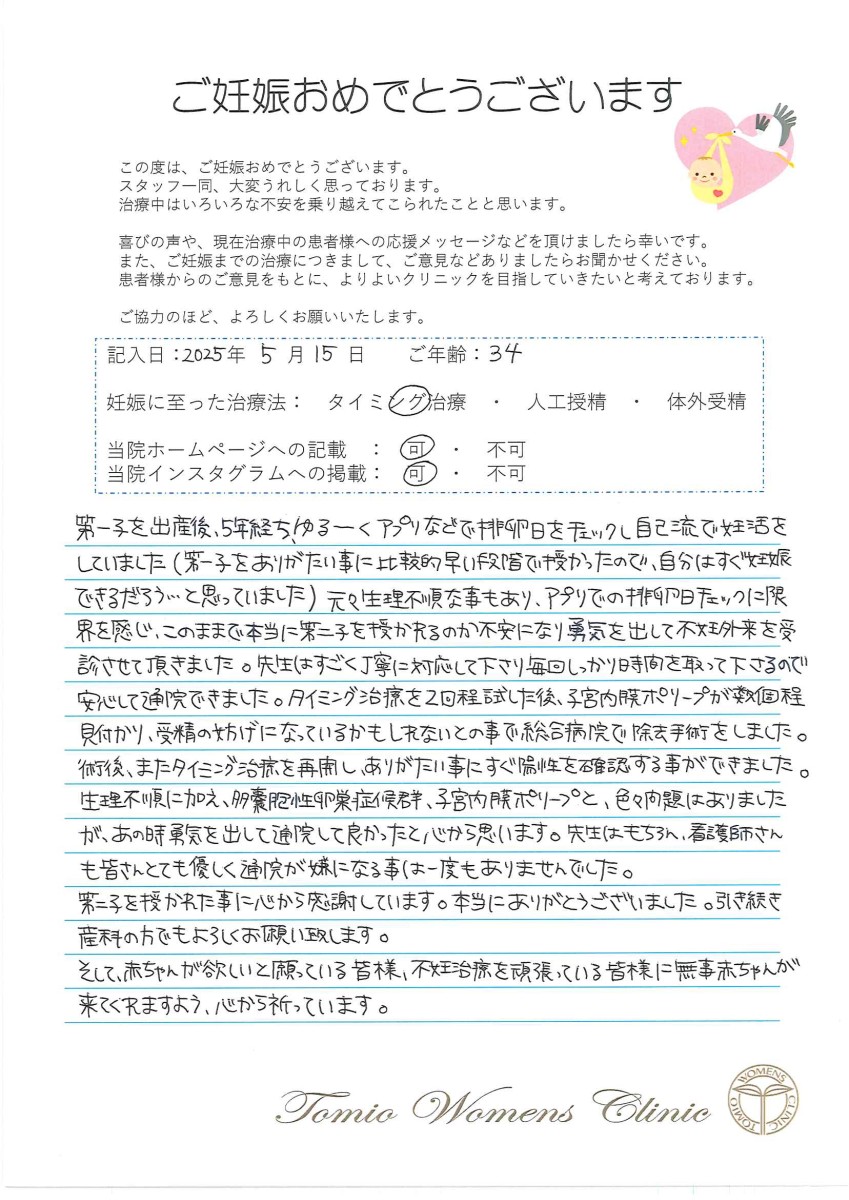 ご妊娠おめでとうございます
この度は、ご妊娠おめでとうございます。
スタッフ一同、大変うれしく思っております。
治療中はいろいろな不安を乗り越えてこられたことと思います。
喜びの声や、現在治療中の患者様への応援メッセージなどを頂けましたら幸いです。
また、ご妊娠までの治療につきまして、ご意見などありましたらお聞かせください。
患者様からのご意見をもとに、よりよいクリニックを目指していきたいと考えております。
ご協力のほど、よろしくお願いいたします。
記入日：2025年 5 月 15 日 ご年齢：34
妊娠に至った治療法： タイミング治療 ・ 人工授精 ・ 体外受精
当院ホームページへの記載 ： 可 ・ 不可
当院インスタグラムへの掲載： 可 ・ 不可
第一子を出産後、5年経ち、ゆる〜くアプリなどで排卵日をチェックし自己流で妊活を
していました(第一子をありがたい事に比較的早い段階で授かったので、自分はすぐ妊娠
できるだろう…と思っていました)元々生理不順な事もあり、アプリでの排卵日チェックに限
界を感じ、このままで本当に第二子を授かれるのか不安になり勇気を出して不妊外来を受
診させて頂きました。先生はすごく丁寧に対応して下さり毎回しっかり時間を取って下さるので
安心して通院できました。タイミング治療を2回程試した後、子宮内膜ポリープが数個程
見付かり、受精の妨げになっているかもしれないとの事で総合病院で除去手術をしました。
術後、またタイミング治療を再開し、ありがたい事にすぐ陽性を確認する事ができました。
生理不順に加え、多嚢胞性卵巣症候群、子宮内膜ポリープと、色々問題はありました
が、あの時勇気を出して通院して良かったと心から思います。先生はもちろん、看護師さん
も皆さんとても優しく通院が嫌になる事は一度もありませんでした。
第二子を授かれた事に心から感謝しています。本当にありがとうございました。引き続き
産科の方でもよろしくお願い致します。
そして、赤ちゃんが欲しいと願っている皆様、不妊治療を頑張っている皆様に無事赤ちゃんが
来てくれますよう、心から祈っています。
Tomio Womens Clinic
TOMIO WOMENS CLINIC